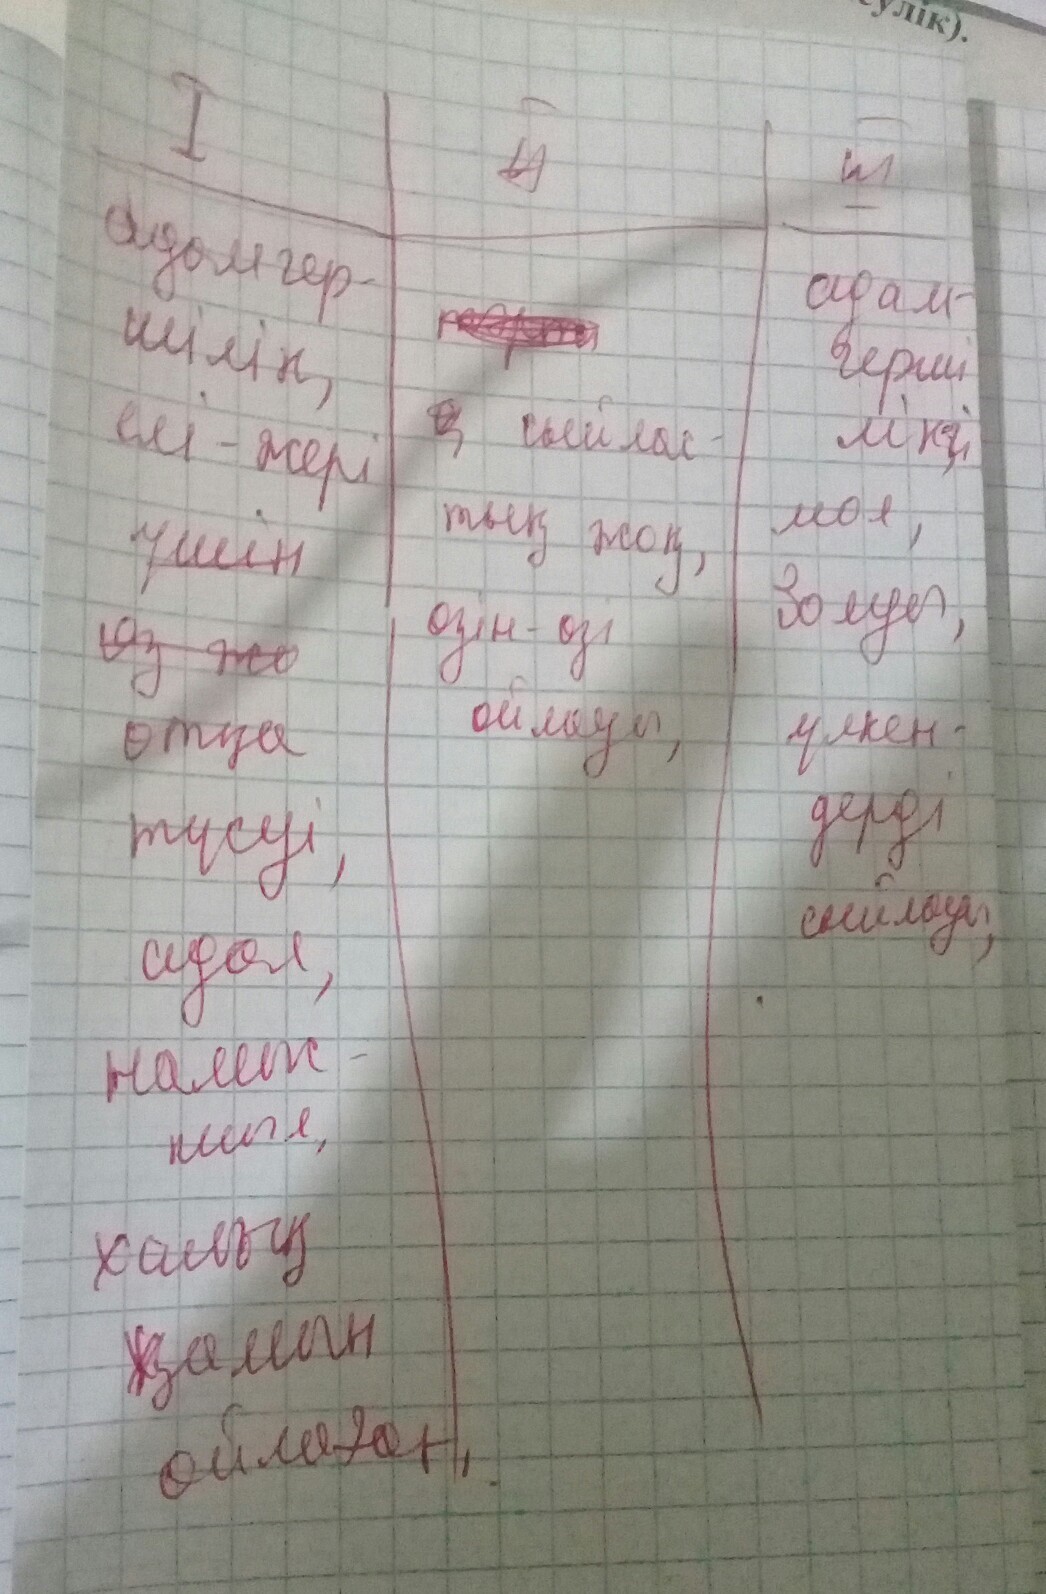 сулік).
I
II
III
адамгер-
шілік,
елі-жері
үшін
отқа
түсуі,
адал,
намыс-
шыл,
халық
қамын
ойлаған,
сыйлас-
тық жоқ,
өзін-өзі
ойлауы,
адам-
герші
лікті
мол,
болуы,
үлкен-
дерді
сыйлауы,